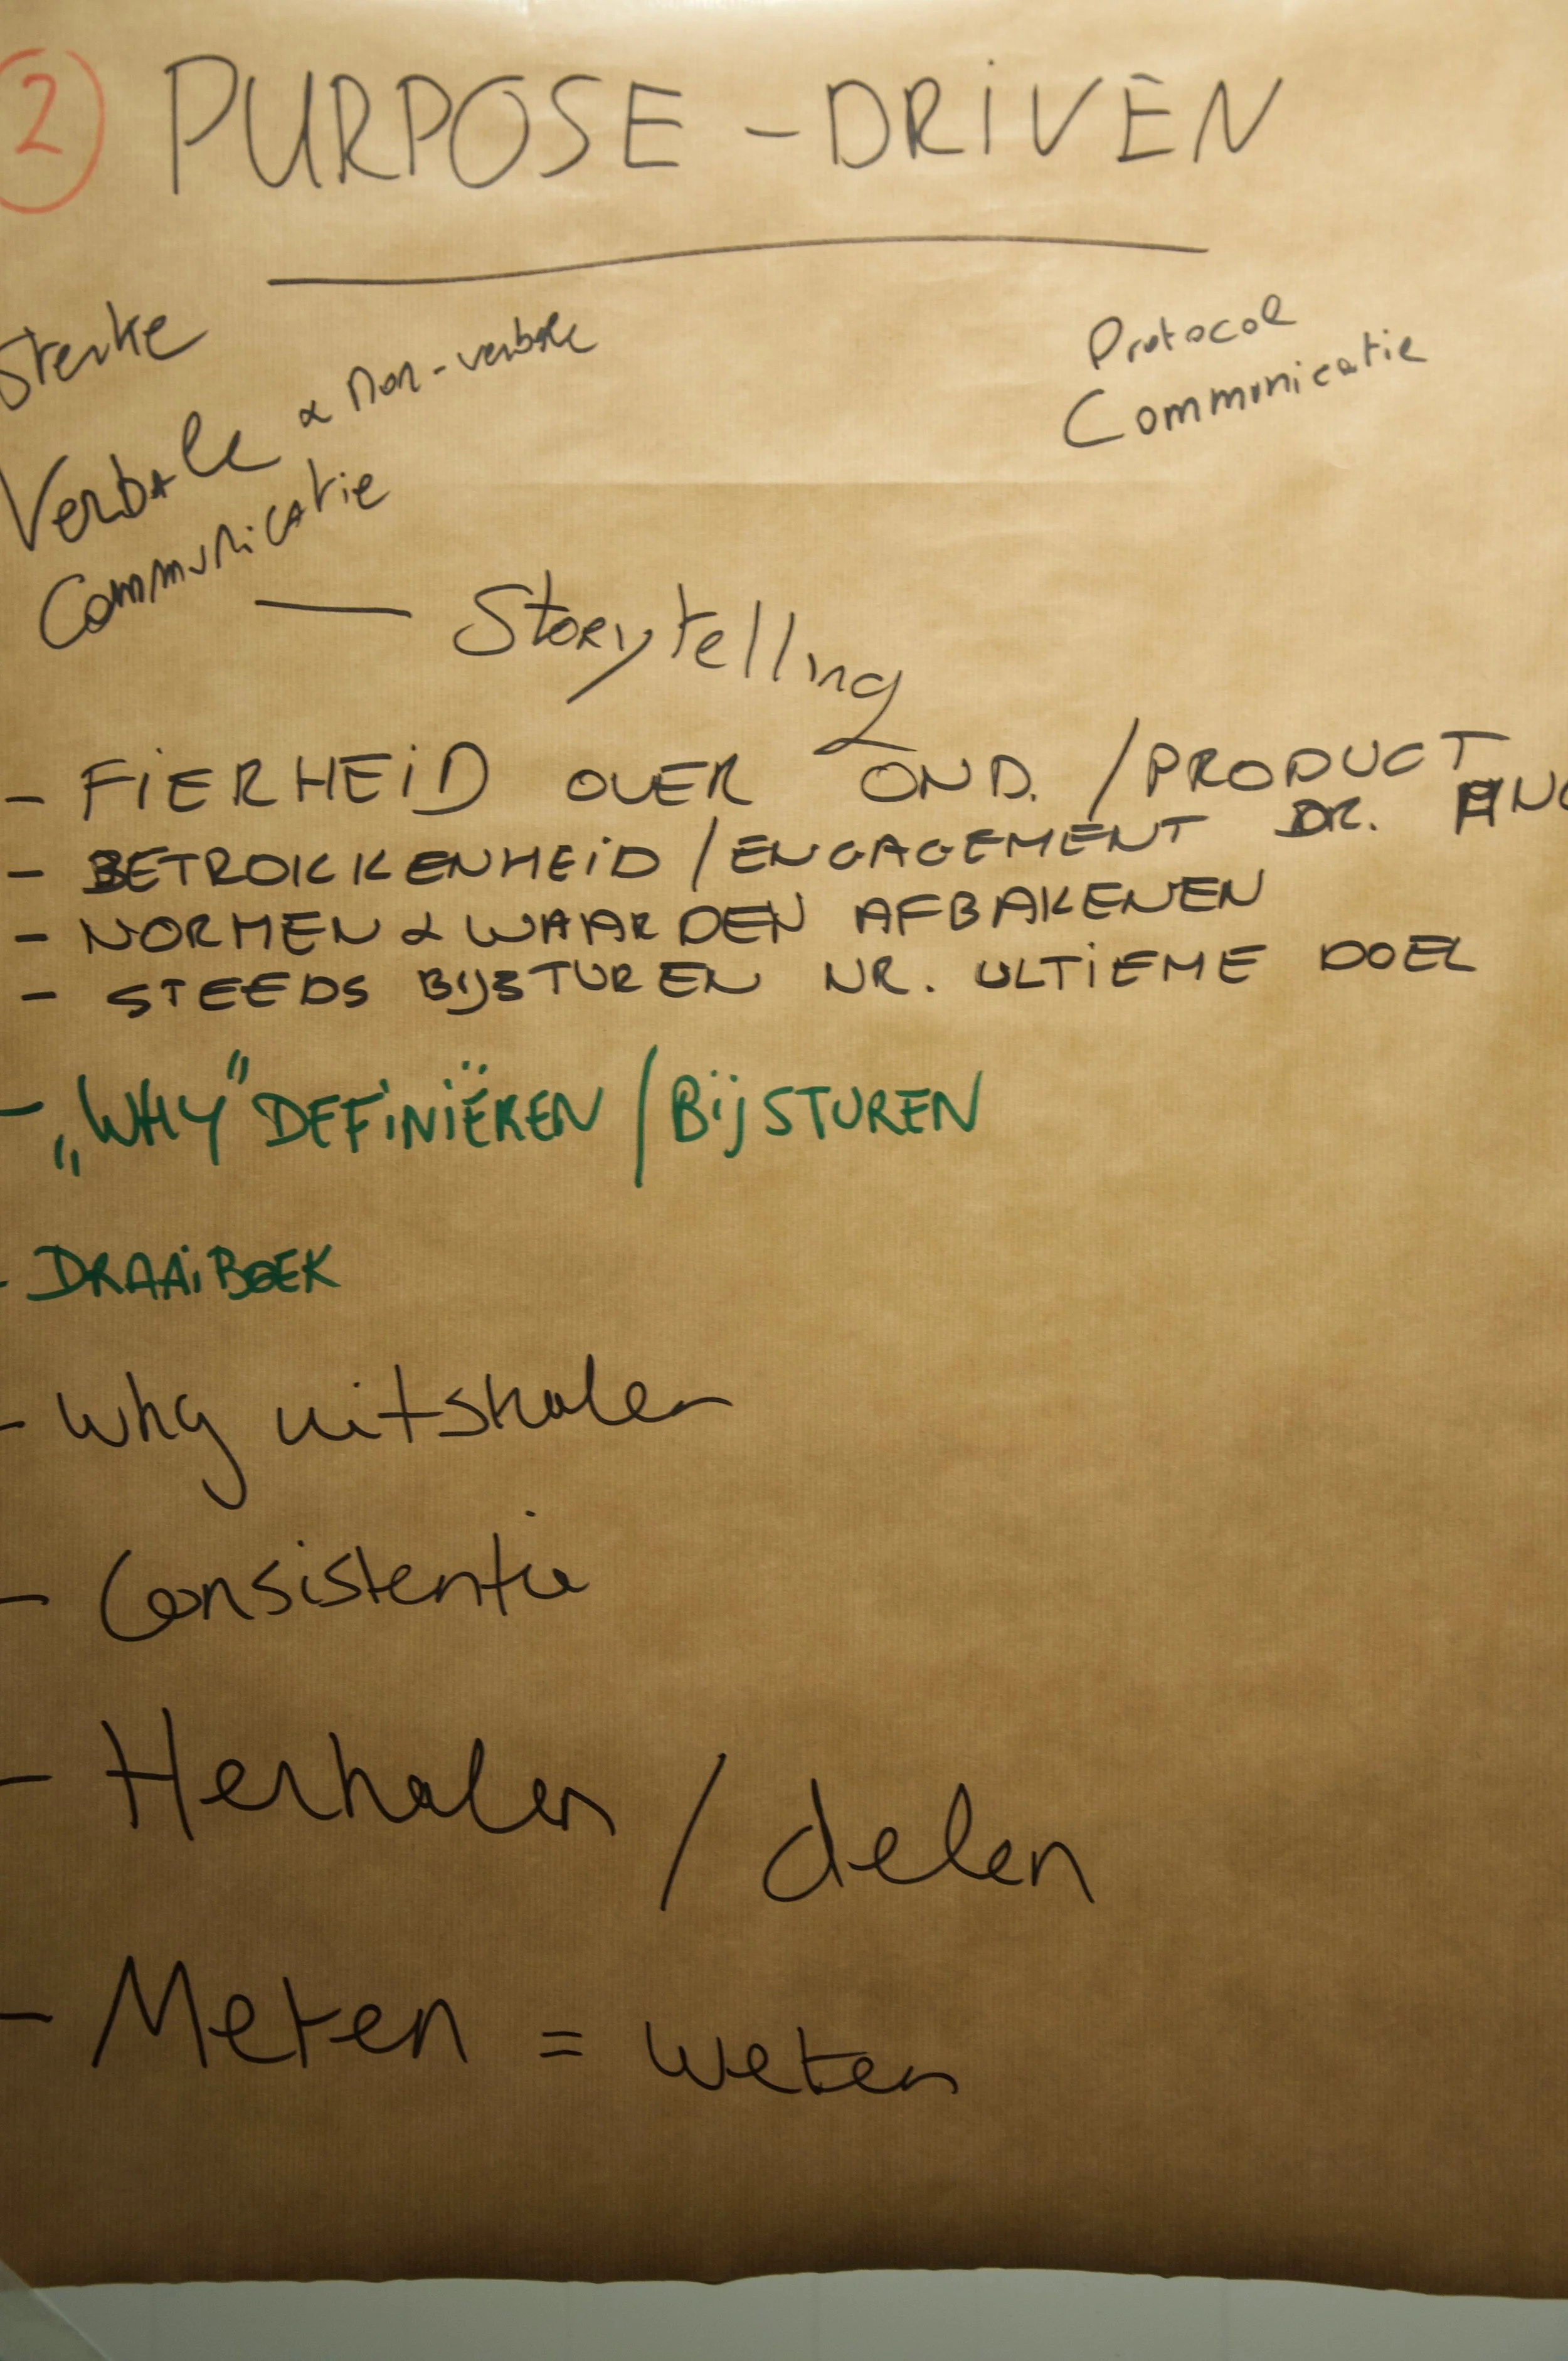 2 PURPOSE-DRIVEN
Sterke
Verbale & non-verbale
Communicatie
Protocol
Communicatie
— Storytelling
- FIERHEID OVER OND. / PRODUCT
- BETROKKENHEID / ENGAGEMENT DR.
- NORMEN & WAARDEN AFBAKENEN
- STEEDS BIJSTUREN NR. ULTIEME DOEL
- „WHY" DEFINIËREN / BIJSTUREN
- DRAAIBOEK
- Why uitshalen
- Consistentie
- Herhalen / delen
- Meten = weten